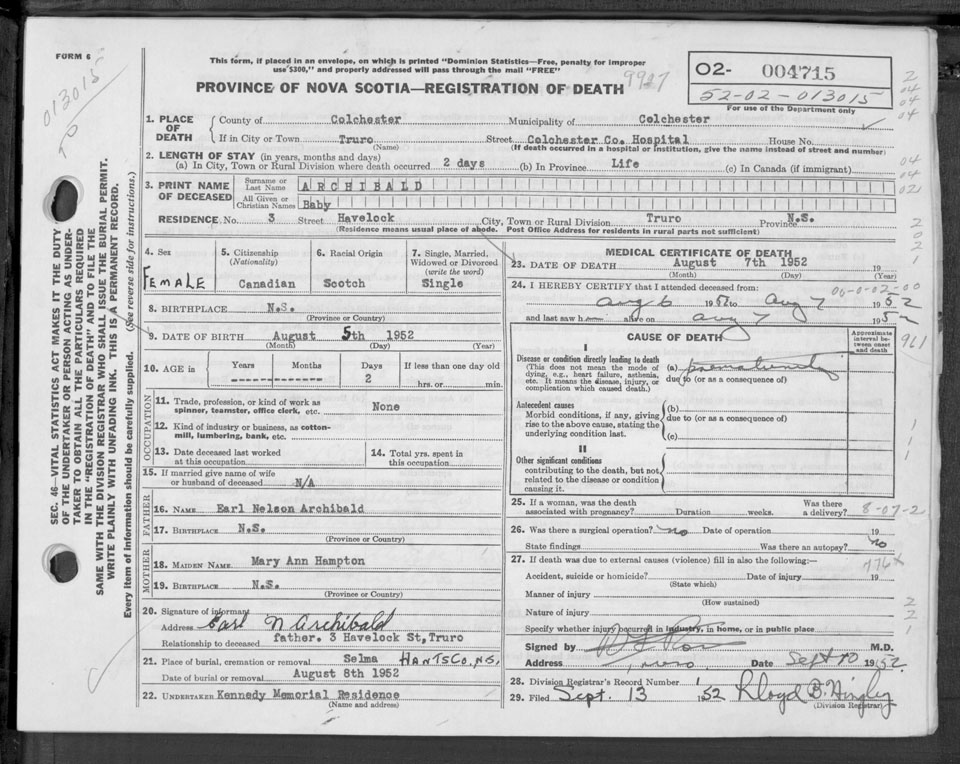 FORM 6
013015
This form, if placed in an envelope, on which is printed "Dominion Statistics—Free, penalty for improper
use $300," and properly addressed will pass through the mail "FREE"
9927
PROVINCE OF NOVA SCOTIA—REGISTRATION OF DEATH
02- 004715
52-02-013015
For use of the Department only
1. PLACE OF DEATH
County of Colchester Municipality of Colchester
If in City or Town Truro Street Colchester Co. Hospital House No.
(Name) (If death occurred in a hospital or institution, give the name instead of street and number)
2. LENGTH OF STAY (in years, months and days)
(a) In City, Town or Rural Division where death occurred 2 days (b) In Province Life (c) In Canada (if immigrant)
3. PRINT NAME OF DECEASED
Surname or Last Name ARCHIBALD
All Given or Christian Names Baby
RESIDENCE. No. 3 Street Havelock City, Town or Rural Division Truro Province N.S.
(Residence means usual place of abode. Post Office Address for residents in rural parts not sufficient)
4. Sex
FEMALE
5. Citizenship
(Nationality)
Canadian
6. Racial Origin
Scotch
7. Single, Married,
Widowed or Divorced
(write the word)
Single
8. BIRTHPLACE N.S.
(Province or Country)
9. DATE OF BIRTH August 5th 1952
(Month) (Day) (Year)
10. AGE in Years Months Days If less than one day old
2 hrs. or min.
OCCUPATION
11. Trade, profession, or kind of work as
spinner, teamster, office clerk, etc. None
12. Kind of industry or business, as cotton-
mill, lumbering, bank, etc.
13. Date deceased last worked
at this occupation
14. Total yrs. spent in
this occupation
15. If married give name of wife
or husband of deceased N/A
FATHER
16. NAME Earl Nelson Archibald
17. BIRTHPLACE N.S.
(Province or Country)
MOTHER
18. MAIDEN NAME Mary Ann Hampton
19. BIRTHPLACE N.S.
(Province or Country)
20. Signature of informant
Address Earl N Archibald
Relationship to deceased father. 3 Havelock St, Truro
21. Place of burial, cremation or removal Selma HANTS CO. N.S.
Date of burial or removal August 8th 1952
22. UNDERTAKER Kennedy Memorial Residence
(Name and address)
MEDICAL CERTIFICATE OF DEATH
23. DATE OF DEATH August 7th 1952 19
(Month) (Day) (Year)
24. I HEREBY CERTIFY that I attended deceased from:
00-0-02-00
Aug 6 1952 to Aug 7 1952
and last saw h alive on Aug 7 1952
CAUSE OF DEATH
Approximate
interval be-
tween onset
and death
961
I
Disease or condition directly leading to death
(This does not mean the mode of
dying, e.g., heart failure, asthenia,
etc. It means the disease, injury, or
complication which caused death.)
(a) prematurity
due to (or as a consequence of)
Antecedent causes
Morbid conditions, if any, giving
rise to the above cause, stating the
underlying condition last.
(b)
due to (or as a consequence of)
(c)
II
Other significant conditions
contributing to the death, but not
related to the disease or condition
causing it.
25. If a woman, was the death
associated with pregnancy? Duration weeks. Was there
a delivery?
8-07-2
26. Was there a surgical operation? no Date of operation 19
State findings Was there an autopsy? no
776x
27. If death was due to external causes (violence) fill in also the following:—
Accident, suicide or homicide? Date of injury 19
(State which)
Manner of injury
(How sustained)
Nature of injury
Specify whether injury occurred in industry, in home, or in public place
Signed by M.D.
Address Truro Date Sept 10 1952.
28. Division Registrar's Record Number 1
29. Filed Sept. 13 1952 Lloyd B. Hingley
(Division Registrar)
SEC. 46—VITAL STATISTICS ACT MAKES IT THE DUTY
OF THE UNDERTAKER OR PERSON ACTING AS UNDER-
TAKER TO OBTAIN ALL THE PARTICULARS REQUIRED
IN THE "REGISTRATION OF DEATH" AND TO FILE THE
SAME WITH THE DIVISION REGISTRAR WHO SHALL ISSUE THE BURIAL PERMIT.
WRITE PLAINLY WITH UNFADING INK. THIS IS A PERMANENT RECORD.
Every item of information should be carefully supplied. (See reverse side for instructions.)
2
04
04
04
04
04
021
2
02
021
1
1
1
2
2
1